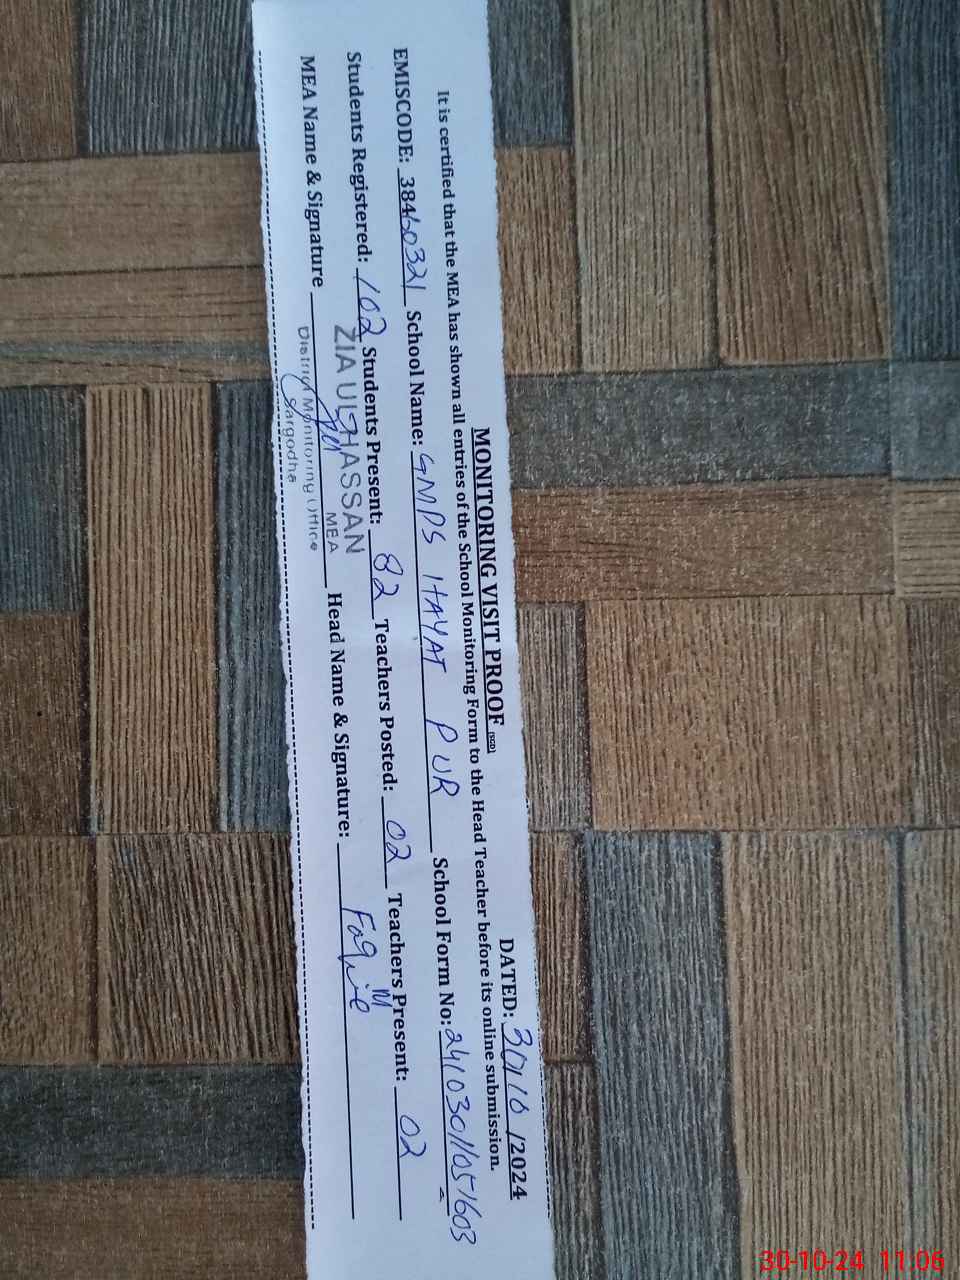 MONITORING VISIT PROOF (SGD)
DATED: 30/10 /2024
It is certified that the MEA has shown all entries of the School Monitoring Form to the Head Teacher before its online submission.
EMISCODE: 38460321 School Name: GMPS HAYAT PUR School Form No: 24103011051603
Students Registered: 102 Students Present: 82 Teachers Posted: 02 Teachers Present: 02
ZIA UL HASSAN
MEA Name & Signature Head Name & Signature:
MEA
District Monitoring Office
Sargodha
30-10-24 11:06